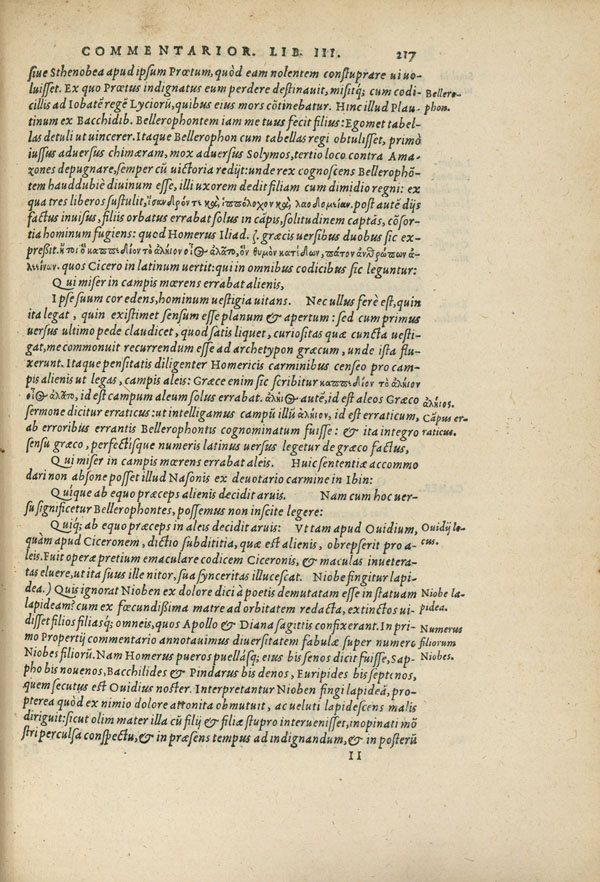 COMMENTARIOR. LIB. III. 217
siue Sthenobea apud ipsum Prœtum, quòd eam nolentem constuprare ui uo-
luisset. Ex quo Prœtus indignatus eum perdere destinauit, misitq; cum codi-
cillis ad Iobatē regē Lyciorū, quibus eius mors cōtinebatur. Hinc illud Plau-
Bellero-
phon.
tinum ex Bacchidib. Bellerophontem iam me tuus fecit filius: Egomet tabel-
las detuli ut uincerer. Itaque Bellerophon cum tabellas regi obtulisset, primò
iussus aduersus chimæram, mox aduersus Solymos, tertio loco contra Ama-
zones depugnare, semper cū uictoria redijt: unde rex cognoscens Bellerophō-
tem haud dubiè diuinum esse, illi uxorem dedit filiam cum dimidio regni: ex
qua tres liberos sustulit, ἴσανδρόν τε καὶ ἱππόλοχον καὶ λαοδαμείαν. post autē dijs
factus inuisus, filijs orbatus errabat solus in cāpis, solitudinem captās, cōsor-
tia hominum fugiens: quod Homerus Iliad. ζ. græcis uersibus duobus sic ex-
pressit. ἤτοι ὁ καππεδίον τὸ ἀλήιον οἶος ἀλᾶτο, ὃν θυμὸν κατέδων, πάτον ἀνθρώπων ἀ-
λεείνων. quos Cicero in latinum uertit: qui in omnibus codicibus sic leguntur:
Qui miser in campis mœrens errabat alienis,
Ipse suum cor edens, hominum uestigia uitans. Nec ullus ferè est, quin
ita legat, quin existimet sensum esse planum & apertum: sed cum primus
uersus ultimo pede claudicet, quod satis liquet, curiositas quæ cuncta uesti-
gat, me commonuit recurrendum esse ad archetypon græcum, unde ista flu-
xerunt. Itaque pensitatis diligenter Homericis carminibus censeo pro cam-
pis alienis ut legas, campis aleis: Græce enim sic scribitur καππεδίον τὸ ἀλήιον
οἶος ἀλᾶτο, id est campum aleum solus errabat. ἀλήιος autē, id est aleos Græco
ἀλήιος.
sermone dicitur erraticus: ut intelligamus campū illū ἀλήιον, id est erraticum,
Cāpus er-
raticus.
ab erroribus errantis Bellerophontis cognominatum fuisse: & ita integro
sensu græco, perfectisque numeris latinus uersus legetur de græco factus,
Qui miser in campis mœrens errabat aleis. Huic sententiæ accommo
dari non absone posset illud Nasonis ex deuotario carmine in Ibin:
Quique ab equo præceps alienis decidit aruis. Nam cum hoc uer-
su significetur Bellerophontes, possemus non inscite legere:
Quiq; ab equo præceps in aleis decidit aruis: Vt tam apud Ouidium,
Ouidij lo-
cus.
quàm apud Ciceronem, dictio subdititia, quæ est alienis, obrepserit pro a-
leis. Fuit operæ pretium emaculare codicem Ciceronis, & maculas inuetera-
tas eluere, ut ita suus ille nitor, sua synceritas illucescat. Niobe fingitur lapi-
dea.) Quis ignorat Nioben ex dolore dici à poetis demutatam esse in statuam
Niobe la-
pidea.
lapideam? cum ex fœcundißima matre ad orbitatem redacta, extinctos ui-
disset filios filiasq; omneis, quos Apollo & Diana sagittis confixerant. In pri-
mo Propertij commentario annotauimus diuersitatem fabulæ super numero
Numerus
filiorum
Niobes.
Niobes filiorū. Nam Homerus pueros puellasq; eius bis senos dicit fuisse, Sap-
pho bis nouenos, Bacchilides & Pindarus bis denos, Euripides bis septenos,
quem secutus est Ouidius noster. Interpretantur Nioben fingi lapideā, pro-
pterea quòd ex nimio dolore attonita obmutuit, ac ueluti lapidescens malis
diriguit: sicut olim mater illa cū filij & filiæ stupro interuenisset, inopinati mō
stri perculsa conspectu, & in præsens tempus ad indignandum, & in posterū
II